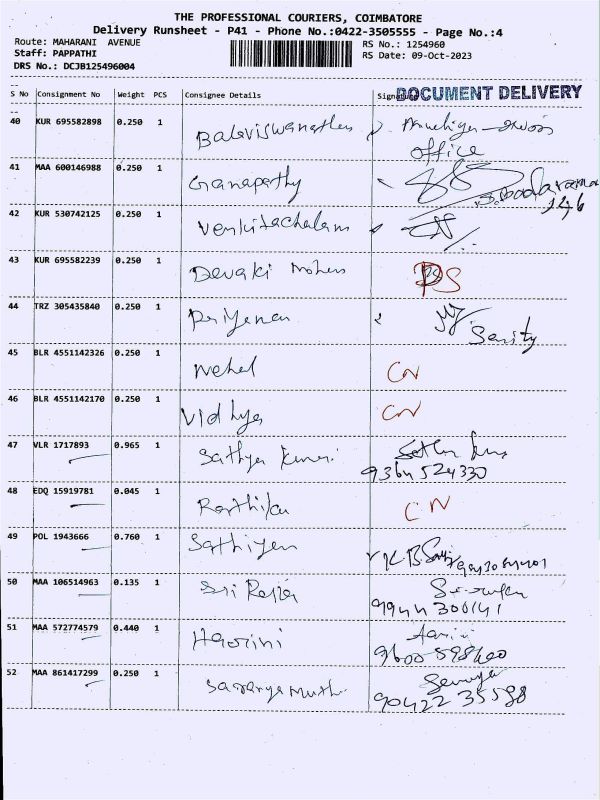 THE PROFESSIONAL COURIERS, COIMBATORE
Delivery Runsheet - P41 - Phone No.:0422-3505555 - Page No.:4
Route: MAHARANI AVENUE RS No.: 1254960
Staff: PAPPATHI RS Date: 09-Oct-2023
DRS No.: DCJB125496004
S No Consignment No Weight PCS Consignee Details DOCUMENT DELIVERY
40 KUR 695582898 0.250 1 Balaviswanathan
office
41 MAA 600146988 0.250 1 Ganapathy
42 KUR 530742125 0.250 1 Venkitachalam
43 KUR 695582239 0.250 1 Devaki Mohan
44 TRZ 305435840 0.250 1
45 BLR 4551142326 0.250 1 Nehal CN
46 BLR 4551142170 0.250 1 Vidhya CN
47 VLR 1717893 0.965 1 Sathya Kumari
9364524330
48 EDQ 15919781 0.045 1 Karthika CN
49 POL 1943666 0.760 1 Sathiyan
50 MAA 106514963 0.135 1 Sri Rajia
9944300141
51 MAA 572774579 0.440 1 Haorini
52 MAA 861417299 0.250 1 Saranya Muthu
9042235588